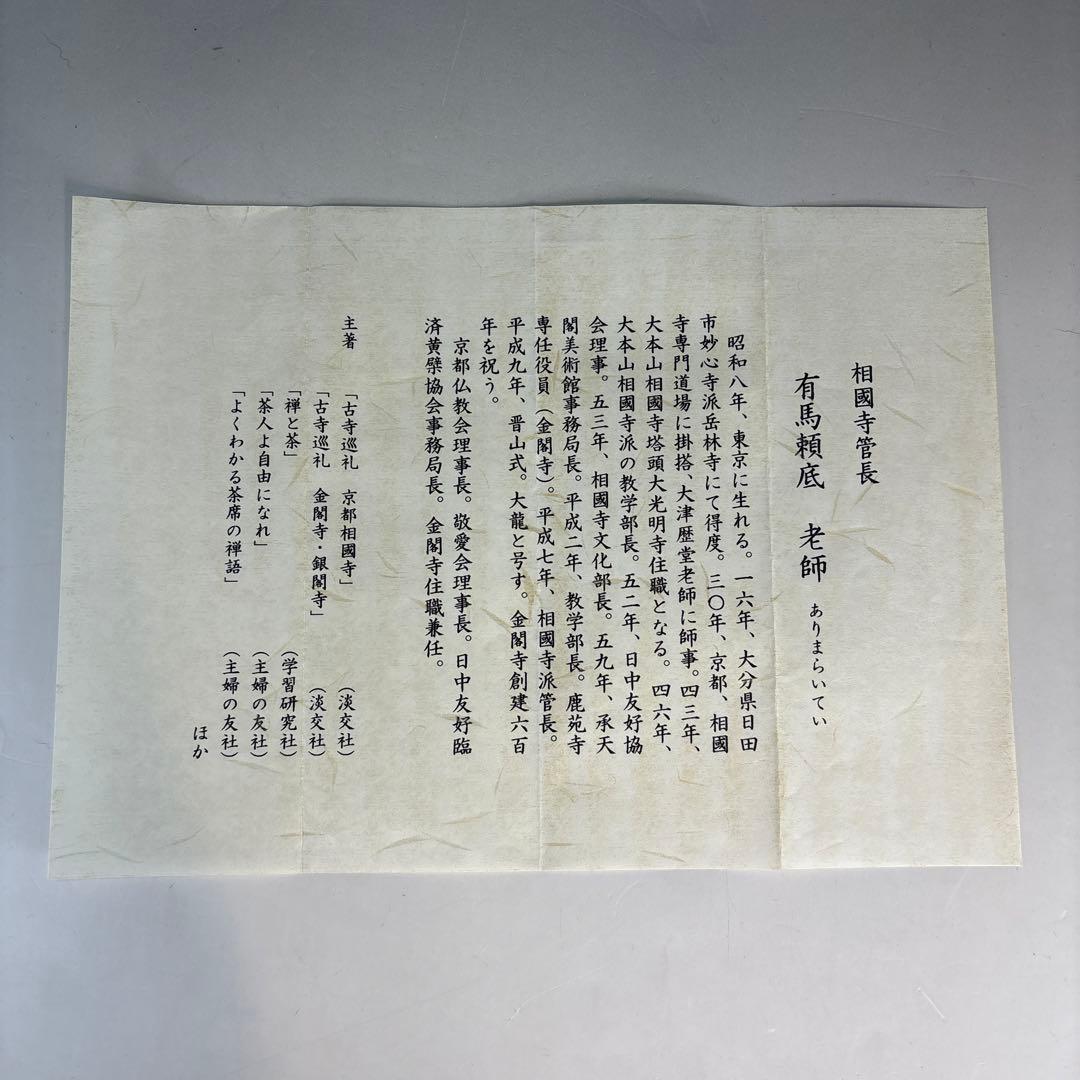 相國寺管長
有馬頼底　老師　ありまらいてい
昭和八年、東京に生れる。一六年、大分県日田
市妙心寺派岳林寺にて得度。三〇年、京都、相國
寺専門道場に掛搭、大津歴堂老師に師事。四三年、
大本山相國寺塔頭大光明寺住職となる。四六年、
大本山相國寺派の教学部長。五二年、日中友好協
会理事。五三年、相國寺文化部長。五九年、承天
閣美術館事務局長。平成二年、教学部長。鹿苑寺
専任役員（金閣寺）。平成七年、相國寺派管長。
平成九年、晋山式。大龍と号す。金閣寺創建六百
年を祝う。
京都仏教会理事長。敬愛会理事長。日中友好臨
済黄檗協会事務局長。金閣寺住職兼任。
主著　「古寺巡礼　京都相國寺」　（淡交社）
「古寺巡礼　金閣寺・銀閣寺」　（淡交社）
「禅と茶」　（学習研究社）
「茶人よ自由になれ」　（主婦の友社）
「よくわかる茶席の禅語」　（主婦の友社）
ほか